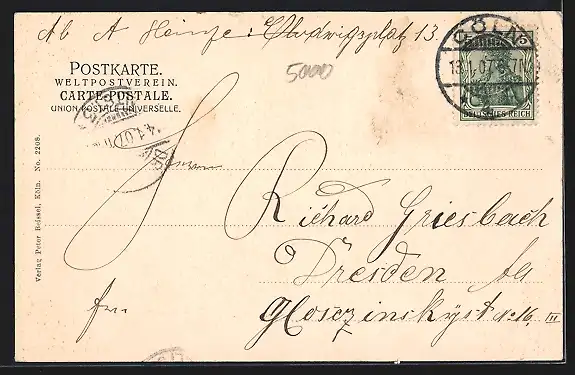 Ab A Heinze: Chlodwigsplatz 13.
5000
CÖLN
13.1.07.
DEUTSCHES REICH
POSTKARTE.
WELTPOSTVEREIN.
CARTE-POSTALE.
UNION POSTALE UNIVERSELLE.
4.1.07
Verlag Peter Beissel, Köln. No. 2208.
Herrn
Richard Griesbach
Dresden
Gloszinskyst No 16, III